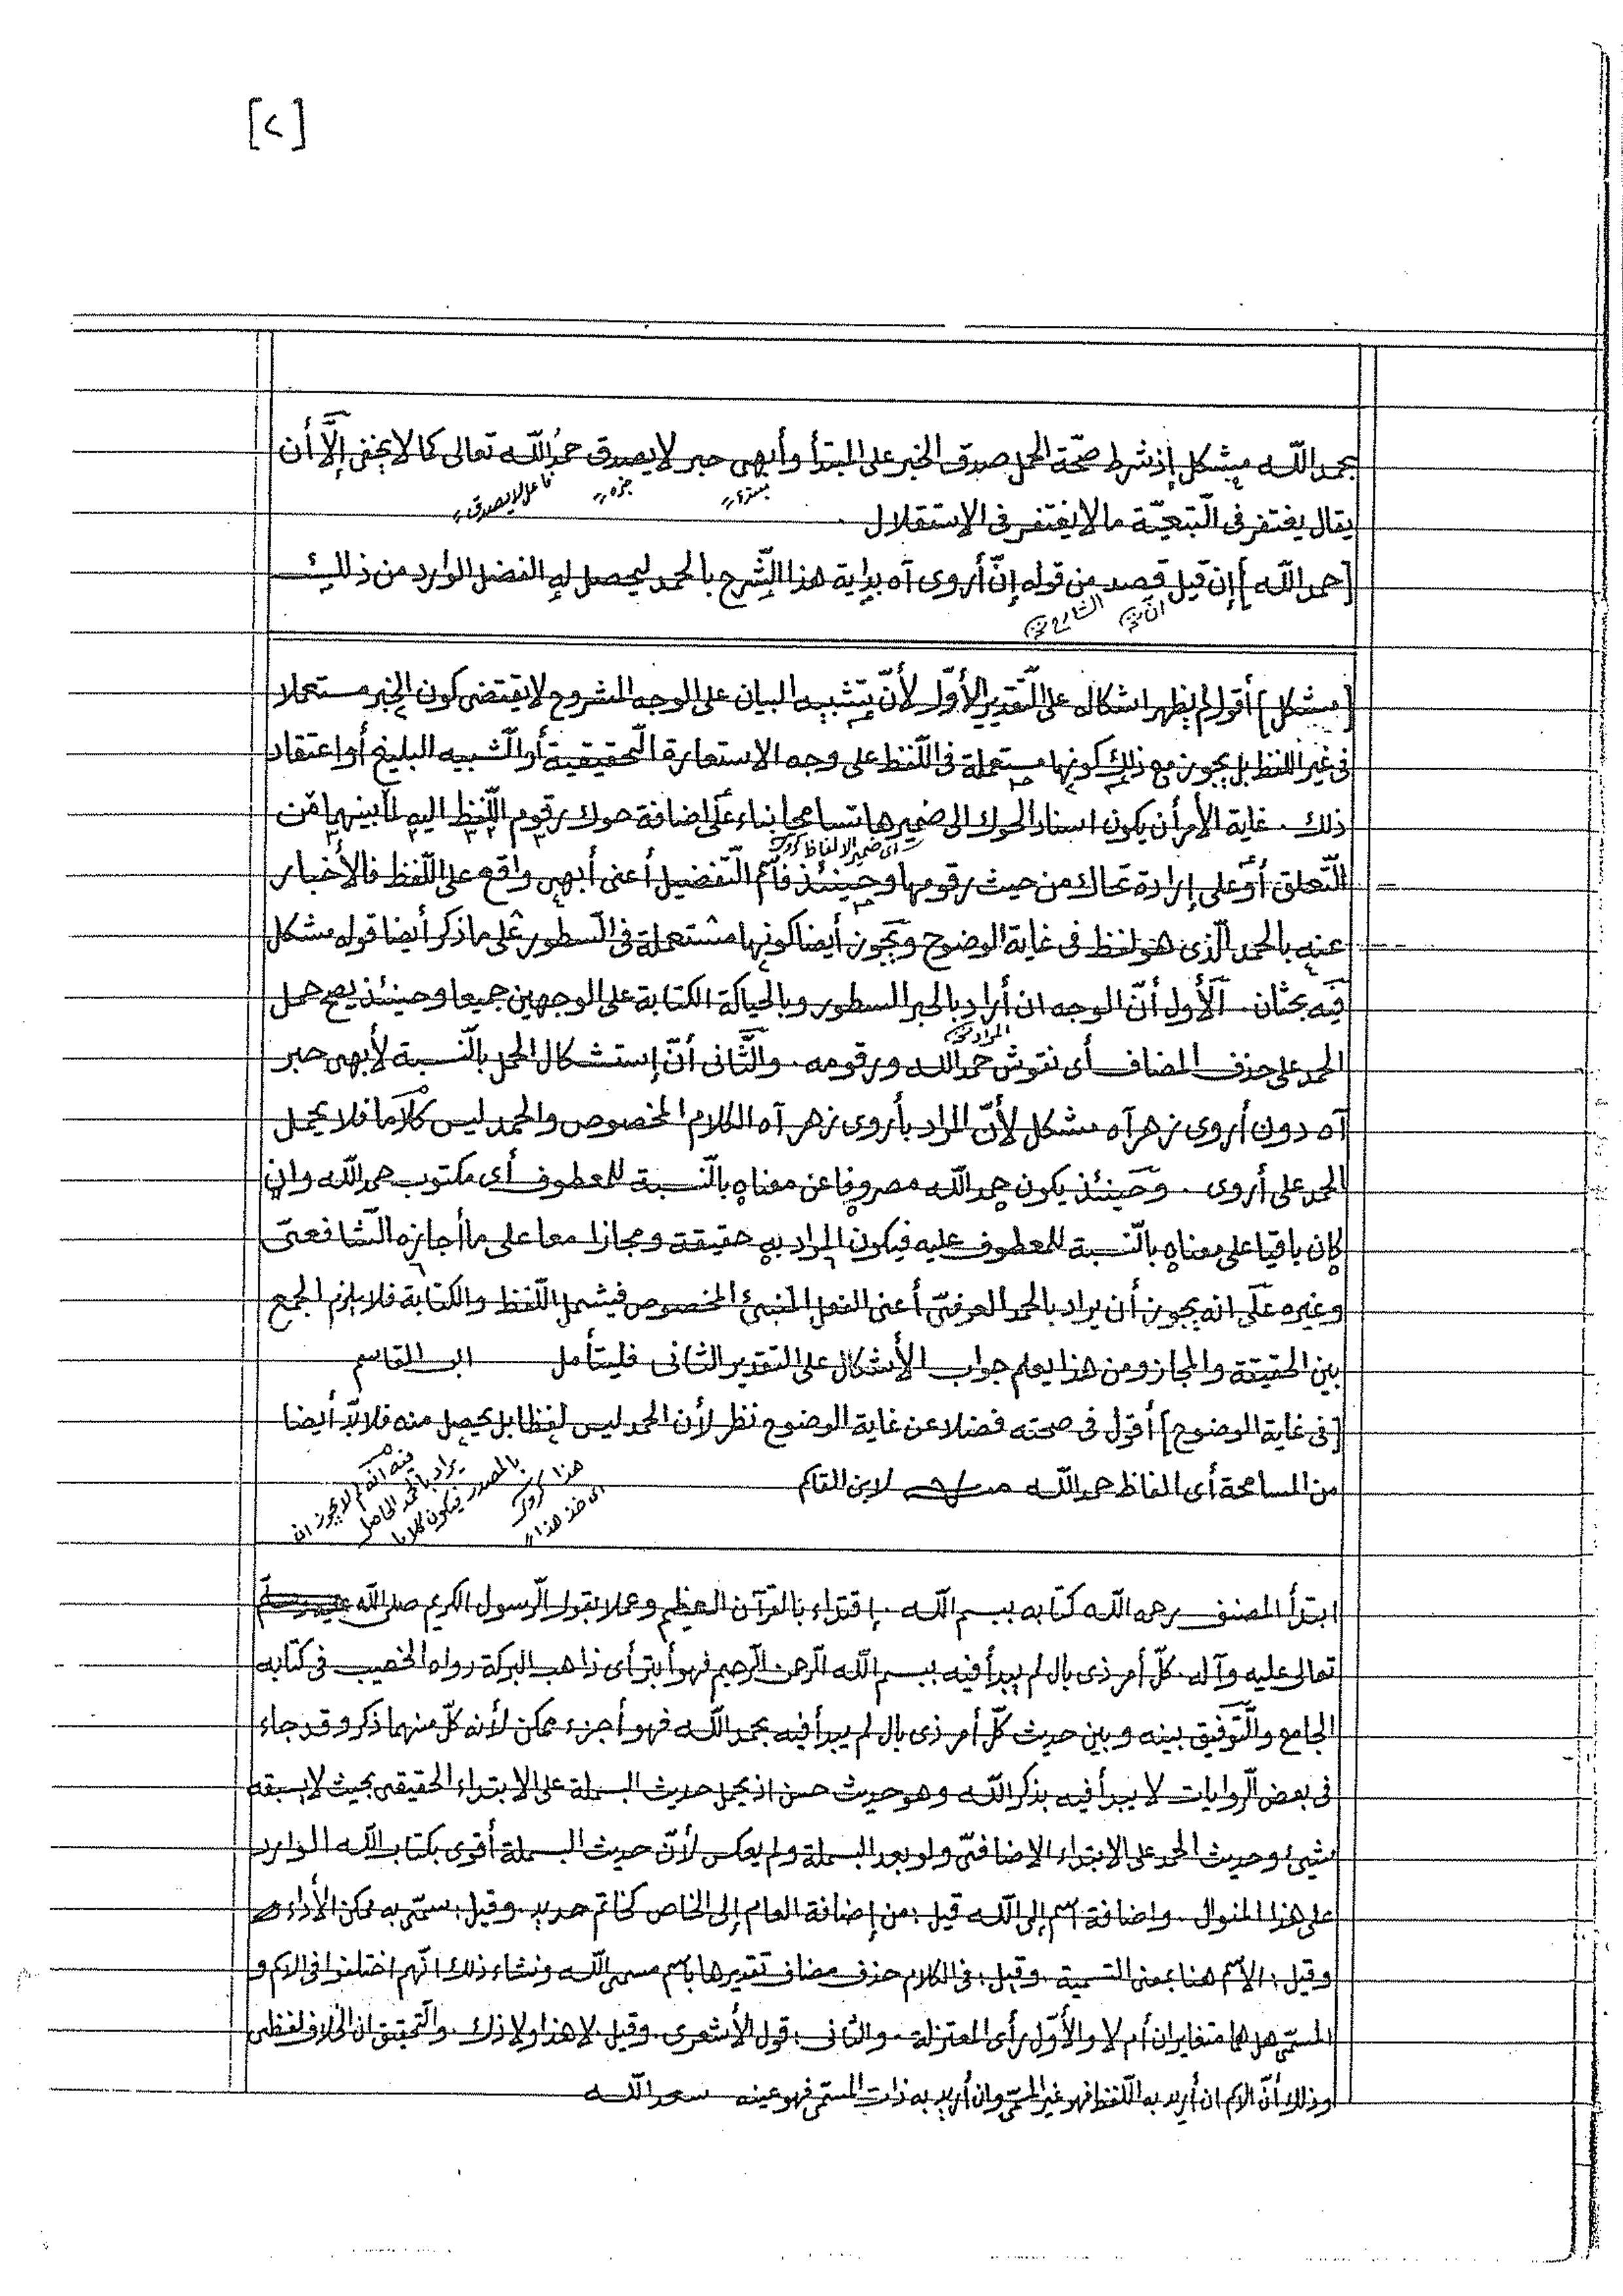 [٢]
بحمد الله مشكل إذ شرط صحّة الحمل صدق الخبر على المبتدأ وأبهى حبر لا يصدق حمدُ الله تعالى كما لا يخفى إلّا أن
فاعل لا يصدق
يقال يغتفر في التّبعيّة ما لا يغتفر في الاستقلال
[حمد الله] إن قيل قصد من قوله إنّ أروى آه بداية هذا الشّرح بالحمد ليحصل له الفضل الوارد من ذلك
الشارح
[مشكل] أقول لم يظهر اشكاله على التّقدير الأوّل لأنّ تشبيه البيان على الوجه المشروح لا يقتضى كون الخبر مستعملا
فى غير اللفظ بل يجوز مع ذلك كونها مستعملة فى اللّفظ على وجه الاستعارة التّحقيقية أو التّشبيه البليغ أو اعتقاد
ذلك . غاية الأمر أن يكون اسناد الحوك الى ضميرها تسامحيا بناء على اضافة حوك رقوم اللّفظ اليه لما بينهما من
اى ضمير الالفاظ
التّعلق أو على إرادة تحاك من حيث رقومها وحينئذ فاسم التّفضيل أعنى أبهى واقع على اللّفظ فالأخبار
عنه بالحمد الّذى هو لفظ فى غاية الوضوح ويجوز أيضا كونها مستعملة فى السّطور على ما ذكر أيضا قوله مشكل
فيه بحثان . الأول أنّ الوجه ان أراد بالحبر السطور وبالحياكة الكتابة على الوجهين جميعا وحينئذ يصح حمل
المراد
الحمد على حذف المضاف أى نقوش حمد الله ورقومه . والثّانى أنّ إستشكال الحمل بالنّسبة لأبهى حبر
آه دون أروى زهر آه مشكل لأنّ المراد بأروى زهر آه الكلام المخصوص والحمد ليس كلاما فلا يحمل
الحمد على أروى . وحينئذ يكون حمد الله مصروفا عن معناه بالنّسبة للمعطوف أى مكتوب حمد الله وان
كان باقيا على معناه بالنّسبة للمعطوف عليه فيكون المراد به حقيقة ومجازا معا على ما أجازه الشّافعىّ
وغيره على انه يجوز أن يراد بالحمد العرفىّ أعنى الفعل المنبئ المخصوص فيشمل اللّفظ والكتابة فلا يلزم الجمع
بين الحقيقة والمجاز ومن هذا يعلم جواب الأشكال على التقدير الثانى فليتأمل ابن القاسم
[فى غاية الوضوح] أقول فى صحته فضلا عن غاية الوضوح نظر لأن الحمد ليس لفظا بل يحصل منه فلا بدّ أيضا
من المسامحة أى الفاظ حمد الله لابن القاسم
فيه انه لم لا يجوز ان
يراد بالحمد الحاصل
بالمصدر فيكون كلاما
ابتدأ المصنف رحمه الله كتابه ببسم الله . إقتداء بالقرآن العظيم وعملا بقول الرّسول الكريم صلى الله
تعالى عليه وآله . كلّ أمر ذى بال لم يبدأ فيه ببسم الله الرّحمن الرّحيم فهو أبتر أى ذاهب البركة رواه الخصيب فى كتابه
الجامع والتّوفيق بينه وبين حديث كلّ أمر ذى بال لم يبدأ فيه بحمد الله فهو أجزء ممكن لأنه كلّ منهما ذكر وقد جاء
فى بعض الرّوايات لا يبدأ فيه بذكر الله وهو حديث حسن اذ يحمل حديث البسملة على الابتداء الحقيقى بحيث لا يسبقه
شيئ وحديث الحمد على الابتداء الاضافىّ ولو بعد البسملة ولم يعكس لأنّ حديث البسملة أقوى بكتاب الله الوارد
على هذا المنوال . واضافة اسم إلى الله قيل : من إضافة العام إلى الخاص كخاتم حديد . وقيل : سمّى به ممكن الأداء
وقيل : الاسم هنا بمعنى التسمية . وقيل : فى الكلام حذف مضاف تقديرها باسم مسمى الله ونشاء ذلك انّهم اختلفوا فى الاسم و
المسمّى هل هما متغايران أم لا والأوّل رأى المعتزلة . والثّانى : قول الأشعرى . وقيل لا هذا ولا ذلك . والتّحقيق ان الخلاف لفظى
وذلك أنّ الاسم ان أريد به اللّفظ فهو غير المسمّى وان أريد به ذات المسمّى فهو عينه سعد الله